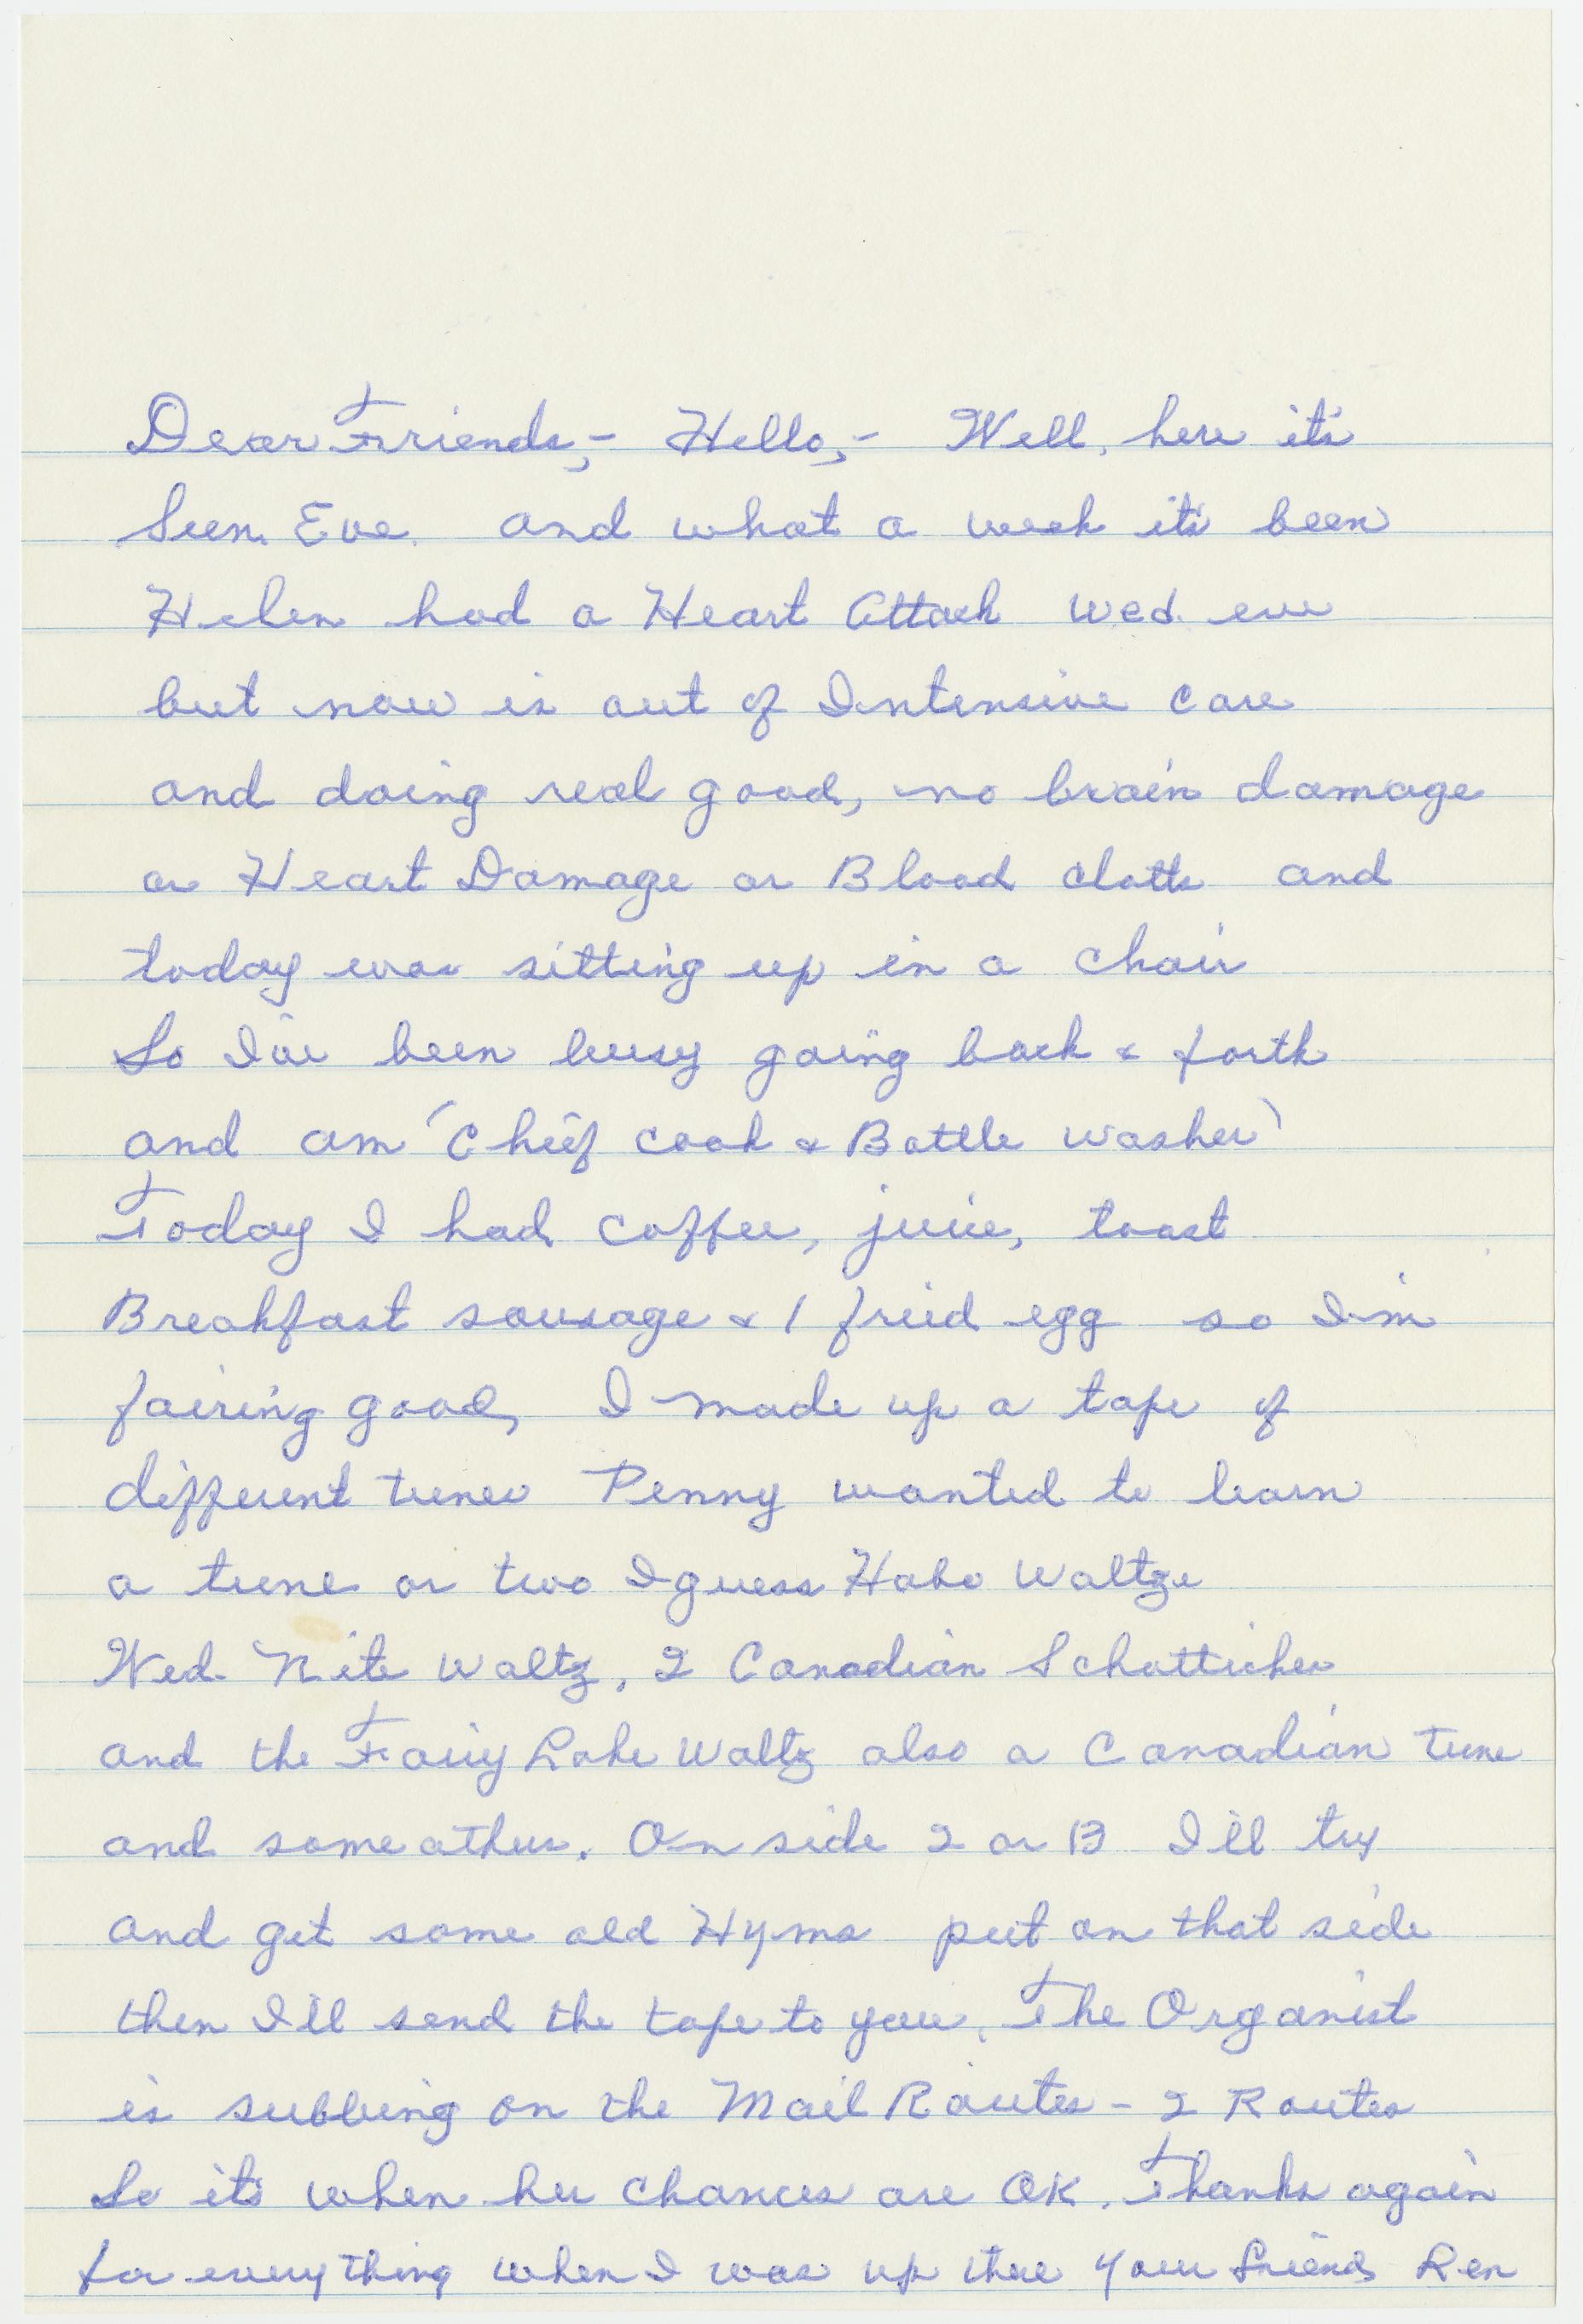 Dear Friends,- Hello,- Well, here it's
Sun. Eve. and what a week it's been
Helen had a Heart Attack Wed. eve
but now is out of Intensive Care
and doing real good, no brain damage
or Heart Damage or Blood clotts and
today was sitting up in a chair
So I've been busy going back & forth
and am "Chief cook & Bottle washer"
Today I had coffee, juice, toast
Breakfast sausage & 1 freid egg so I'm
fairing good, I made up a tape of
different tunes Penny wanted to learn
a tune or two I guess Hobo Waltze
Wed. Nite Waltz, 2 Canadian Schottiches
and the Fairy Lake Waltz also a Canadian Tune
and some others. On side 2 or B I'll try
and get some old Hyms put on that side
then I'll send the tape to you. The Organist
is subbing on the Mail Routes - 2 Routes
So it's when her chances are OK. Thanks again
for everything when I was up there Your friend Ren